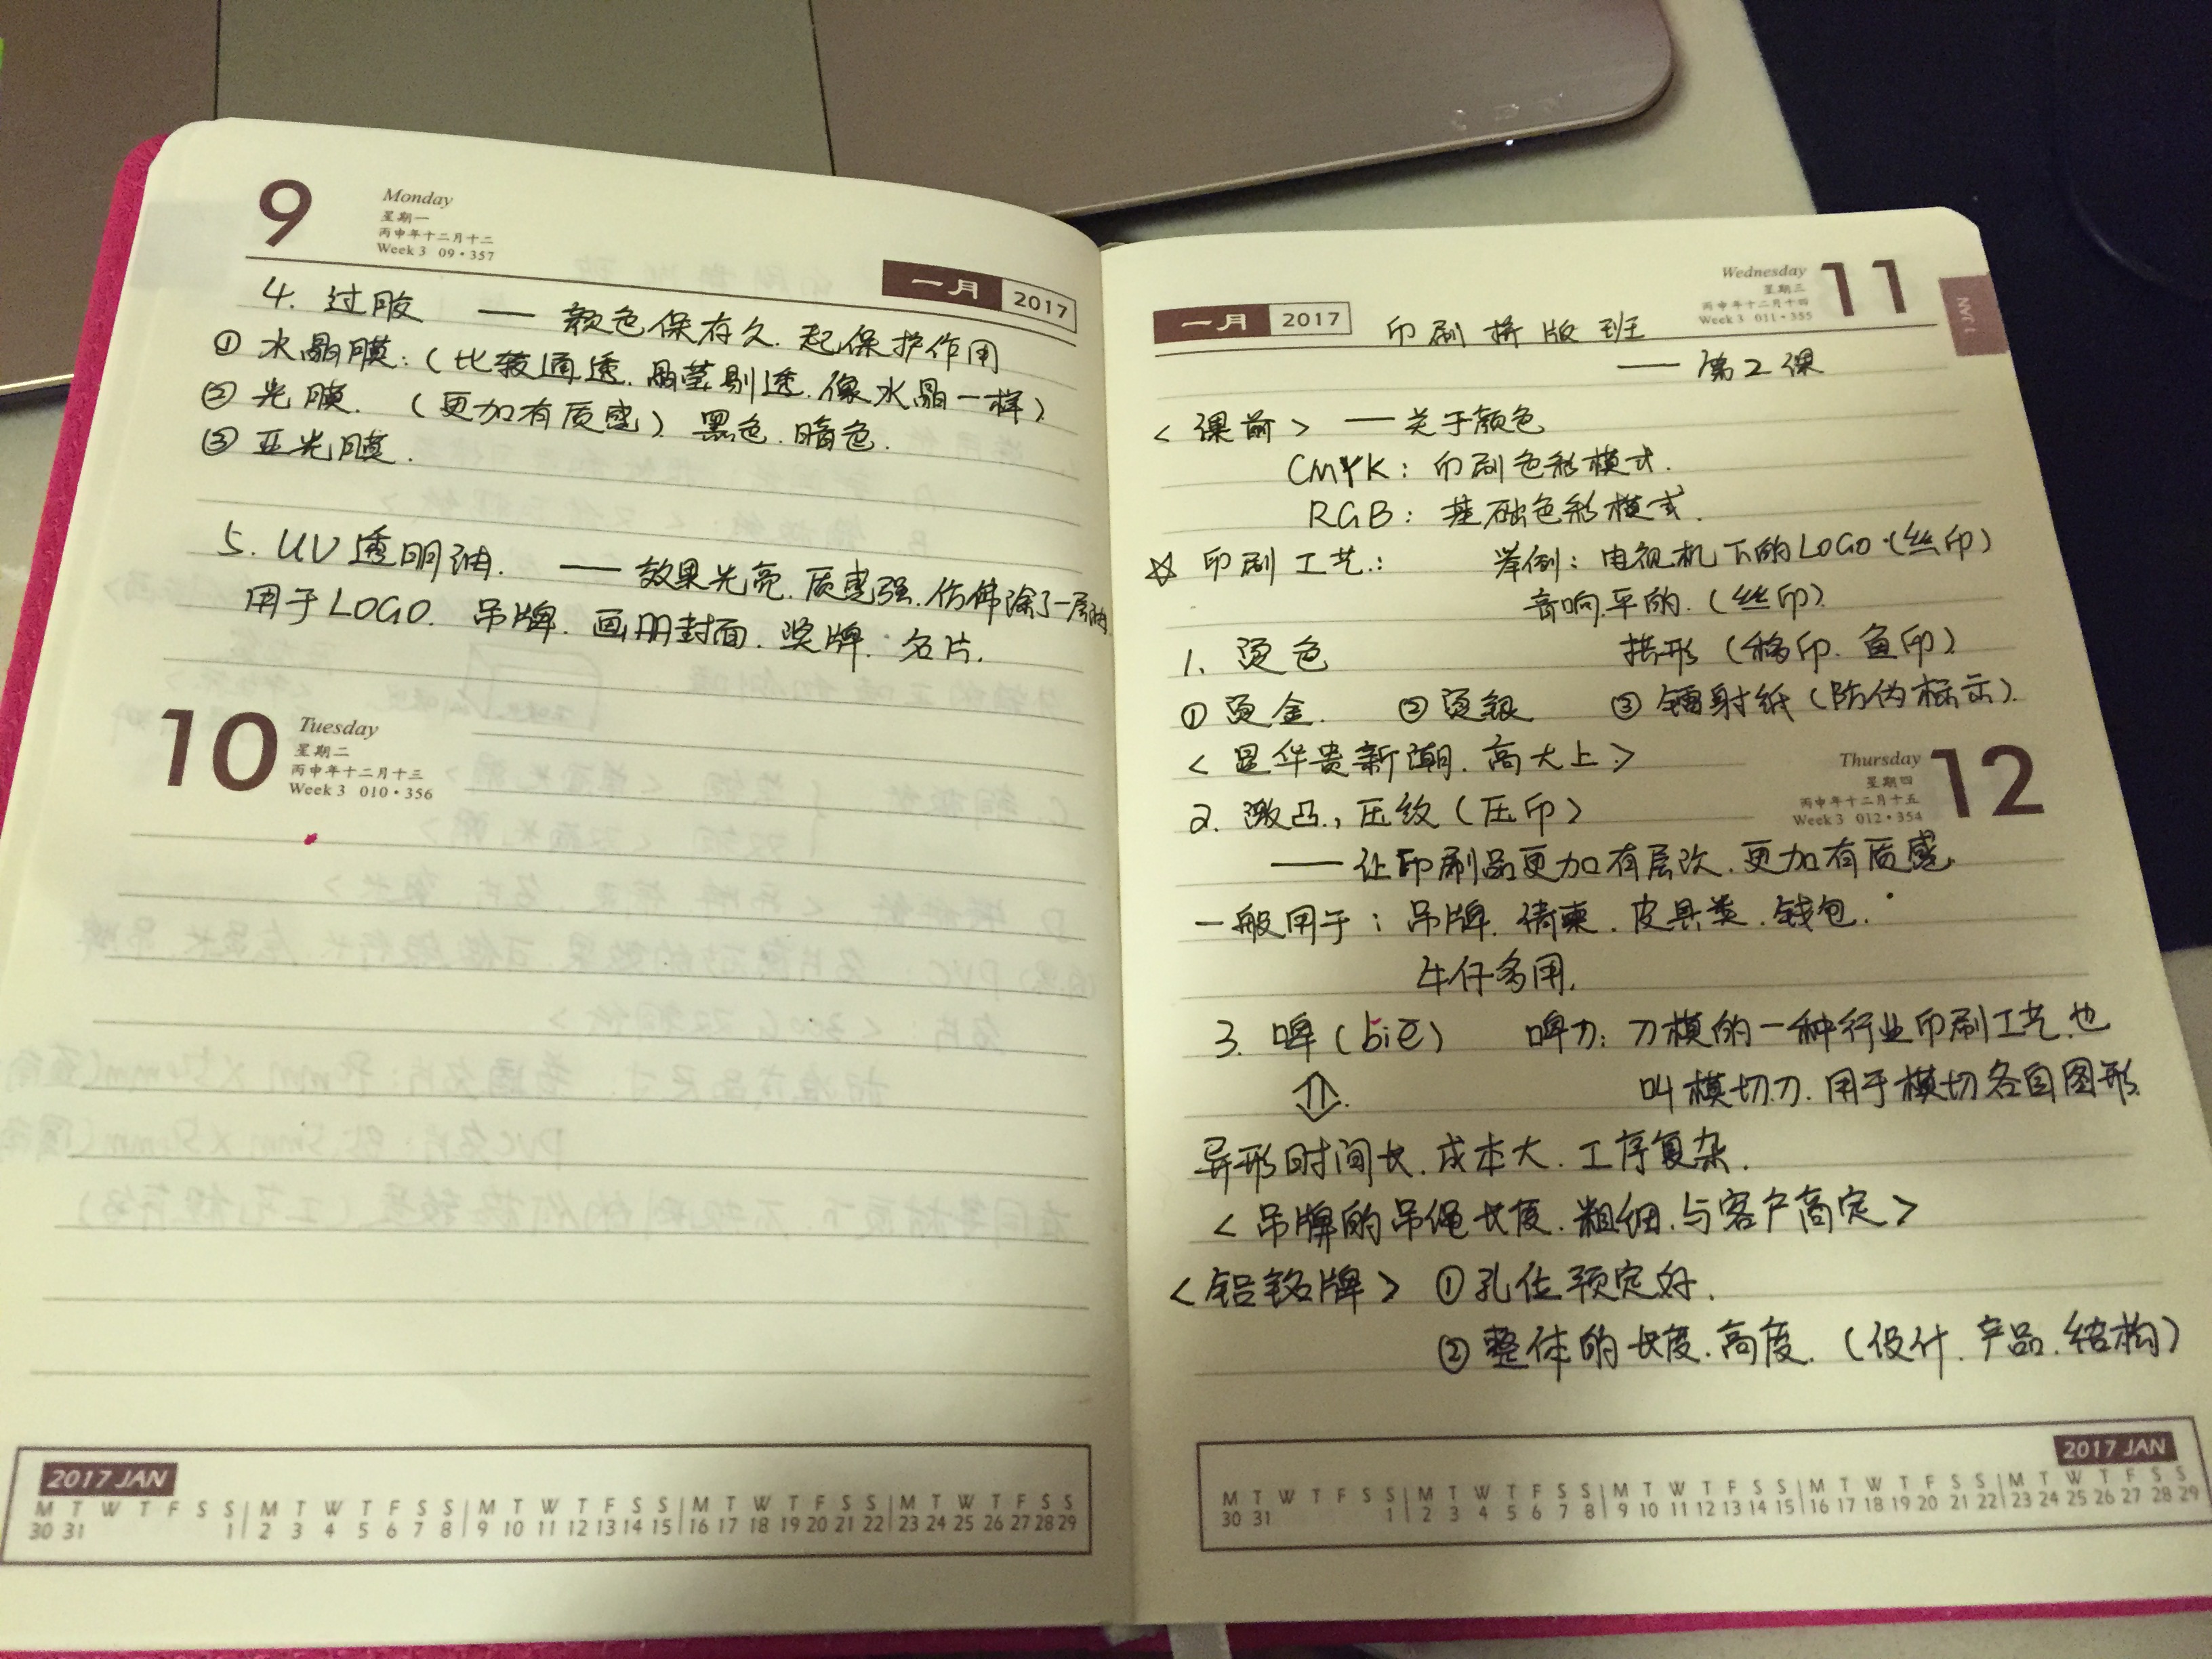 9
Monday
星期一
丙申年十二月十二
Week 3 09·357
一月 2017
4. 过胶 —— 颜色保存久.起保护作用
① 水晶膜:(比较通透.晶莹剔透.像水晶一样)
② 光膜.(更加有质感) 黑色.暗色.
③ 亚光膜.
5. UV透明油. —— 效果光亮.质感强.仿佛除了一层油
用于LOGO. 吊牌.画册封面.奖牌.名片.
10
Tuesday
星期二
丙申年十二月十三
Week 3 010·356
2017 JAN
M T W T F S S M T W T F S S M T W T F S S M T W T F S S M T W T F S S
30 31 1 2 3 4 5 6 7 8 9 10 11 12 13 14 15 16 17 18 19 20 21 22 23 24 25 26 27 28 29
11
Wednesday
星期三
丙申年十二月十四
Week 3 011·355
1 JAN
一月 2017
印刷拼版班
—— 第2课
<课前> —— 关于颜色
CMYK: 印刷色彩模式.
RGB: 基础色彩模式.
☆ 印刷工艺.: 举例:电视机下的LOGO.(丝印)
音响.平的.(丝印)
1. 烫色 拱形(移印.鱼印)
① 烫金. ② 烫银 ③ 镭射纸(防伪标示).
<显华贵新潮.高大上.>
12
Thursday
星期四
丙申年十二月十五
Week 3 012·354
2. 激凸., 压纹(压印)
—— 让印刷品更加有层次.更加有质感.
一般用于: 吊牌. 请柬.皮具类.钱包.
牛仔多用.
3. 啤(biē) 啤刀: 刀模的一种行业印刷工艺.也
叫模切刀.用于模切各自图形.
异形时间长.成本大.工序复杂.
<吊牌的吊绳长度.粗细.与客户商定>
<铝铭牌> ①孔位预定好.
② 整体的长度.高度.(设计.产品.结构)
2017 JAN
M T W T F S S M T W T F S S M T W T F S S M T W T F S S M T W T F S S
30 31 1 2 3 4 5 6 7 8 9 10 11 12 13 14 15 16 17 18 19 20 21 22 23 24 25 26 27 28 29